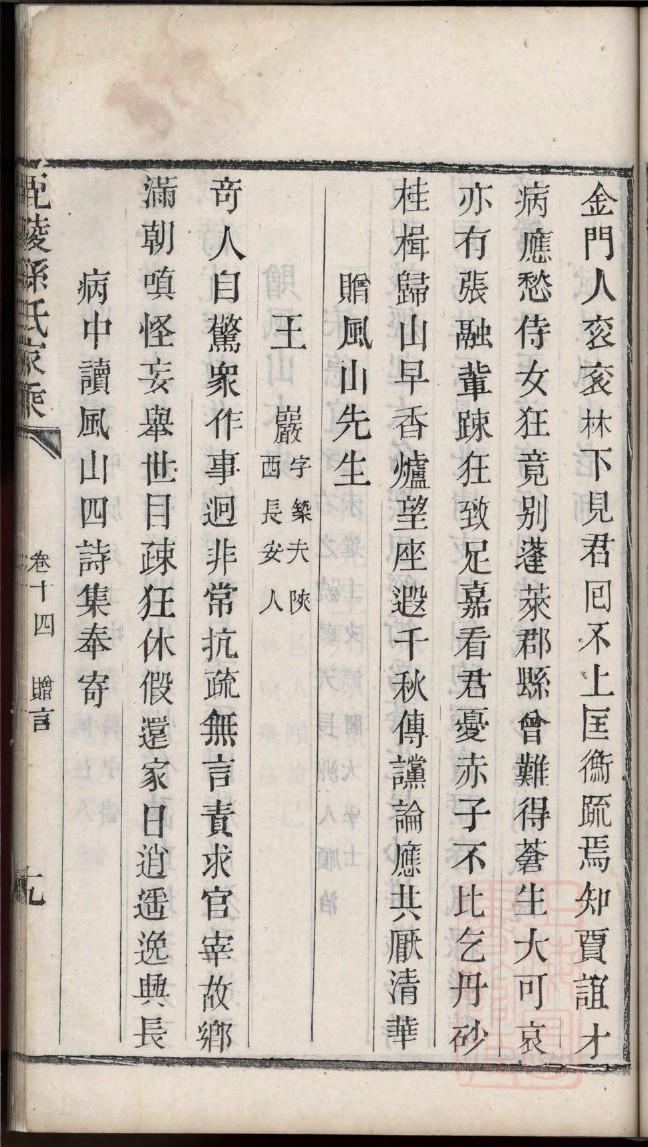 金門人衮衮林下見君囘不上匡衡疏焉知賈誼才
病應愁侍女狂竟别蓬萊郡縣曾難得蒼生大可哀
亦有張融輩踈狂致足嘉看君憂赤子不比乞丹砂
桂楫歸山早香爐望座遐千秋傳讜論應共厭清華
贈風山先生
王 巖字築夫陜
西長安人
竒人自驚衆作事迥非常抗疏無言責求官宰故鄉
滿朝嗔怪妄舉世目疎狂休假還家日逍遥逸興長
病中讀風山四詩集奉寄
毘陵孫氏家乘
卷十四 贈言
九